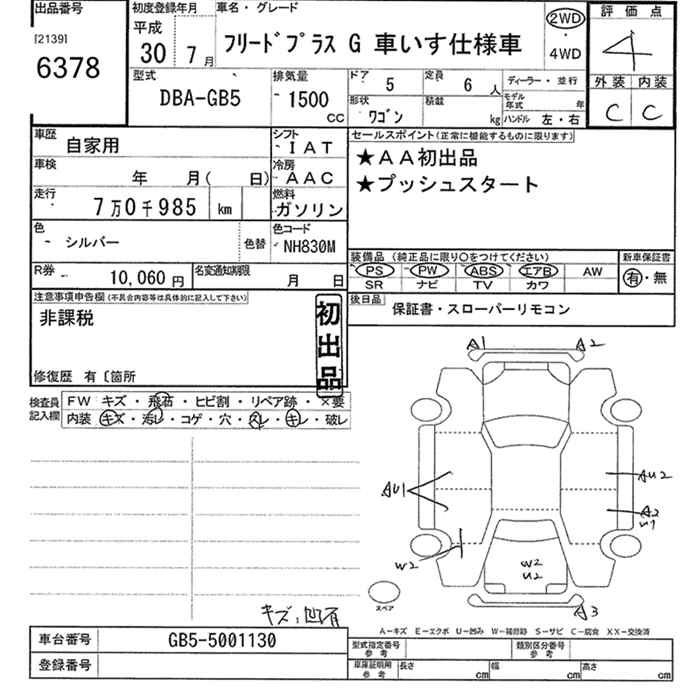 出品番号
[2139]
6378
初度登録年月
平成
30 7月
車名・グレード
フリードプラス G 車いす仕様車
2WD
・
4WD
評価点
4
外装 内装
C C
型式
DBA-GB5
排気量
1500
CC
ドア
5
定員
6 人
形状
ワゴン
積載
kg
ディーラー・並行
モデル年式 年
ハンドル 左・右
車歴
自家用
シフト
IAT
車検
年 月( 日)
冷房
AAC
走行
7万0千985 km
燃料
ガソリン
色
シルバー
色替
色コード
NH830M
R券
10,060円
名変通知期限
月 日
セールスポイント(正常に機能するものに限ります)
★AA初出品
★プッシュスタート
装備品 (純正品に限り○をつけてください)
PS PW ABS エアB AW
SR ナビ TV カワ
新車保証書
有・無
後日品
保証書・スローパーリモコン
注意事項申告欄(不具合内容等は具体的に記入して下さい)
非課税
初出品
修復歴 有〔箇所
検査員記入欄
FW キズ・飛石・ヒビ割・リペア跡・×要
内装・キズ・汚レ・コゲ・穴・スレ・キレ・破レ
A1
A2
AU1
AU2
A2
U1
W2
W2
U2
A3
スペア
キズ、凹有
A-キズ E-エクボ U-凹み W-補修跡 S-サビ C-腐食 XX-交換済
車台番号
GB5-5001130
登録番号
型式指定番号
参考
類別区分番号
参考
車庫証明用
参考
長さ cm
幅 cm
高さ cm